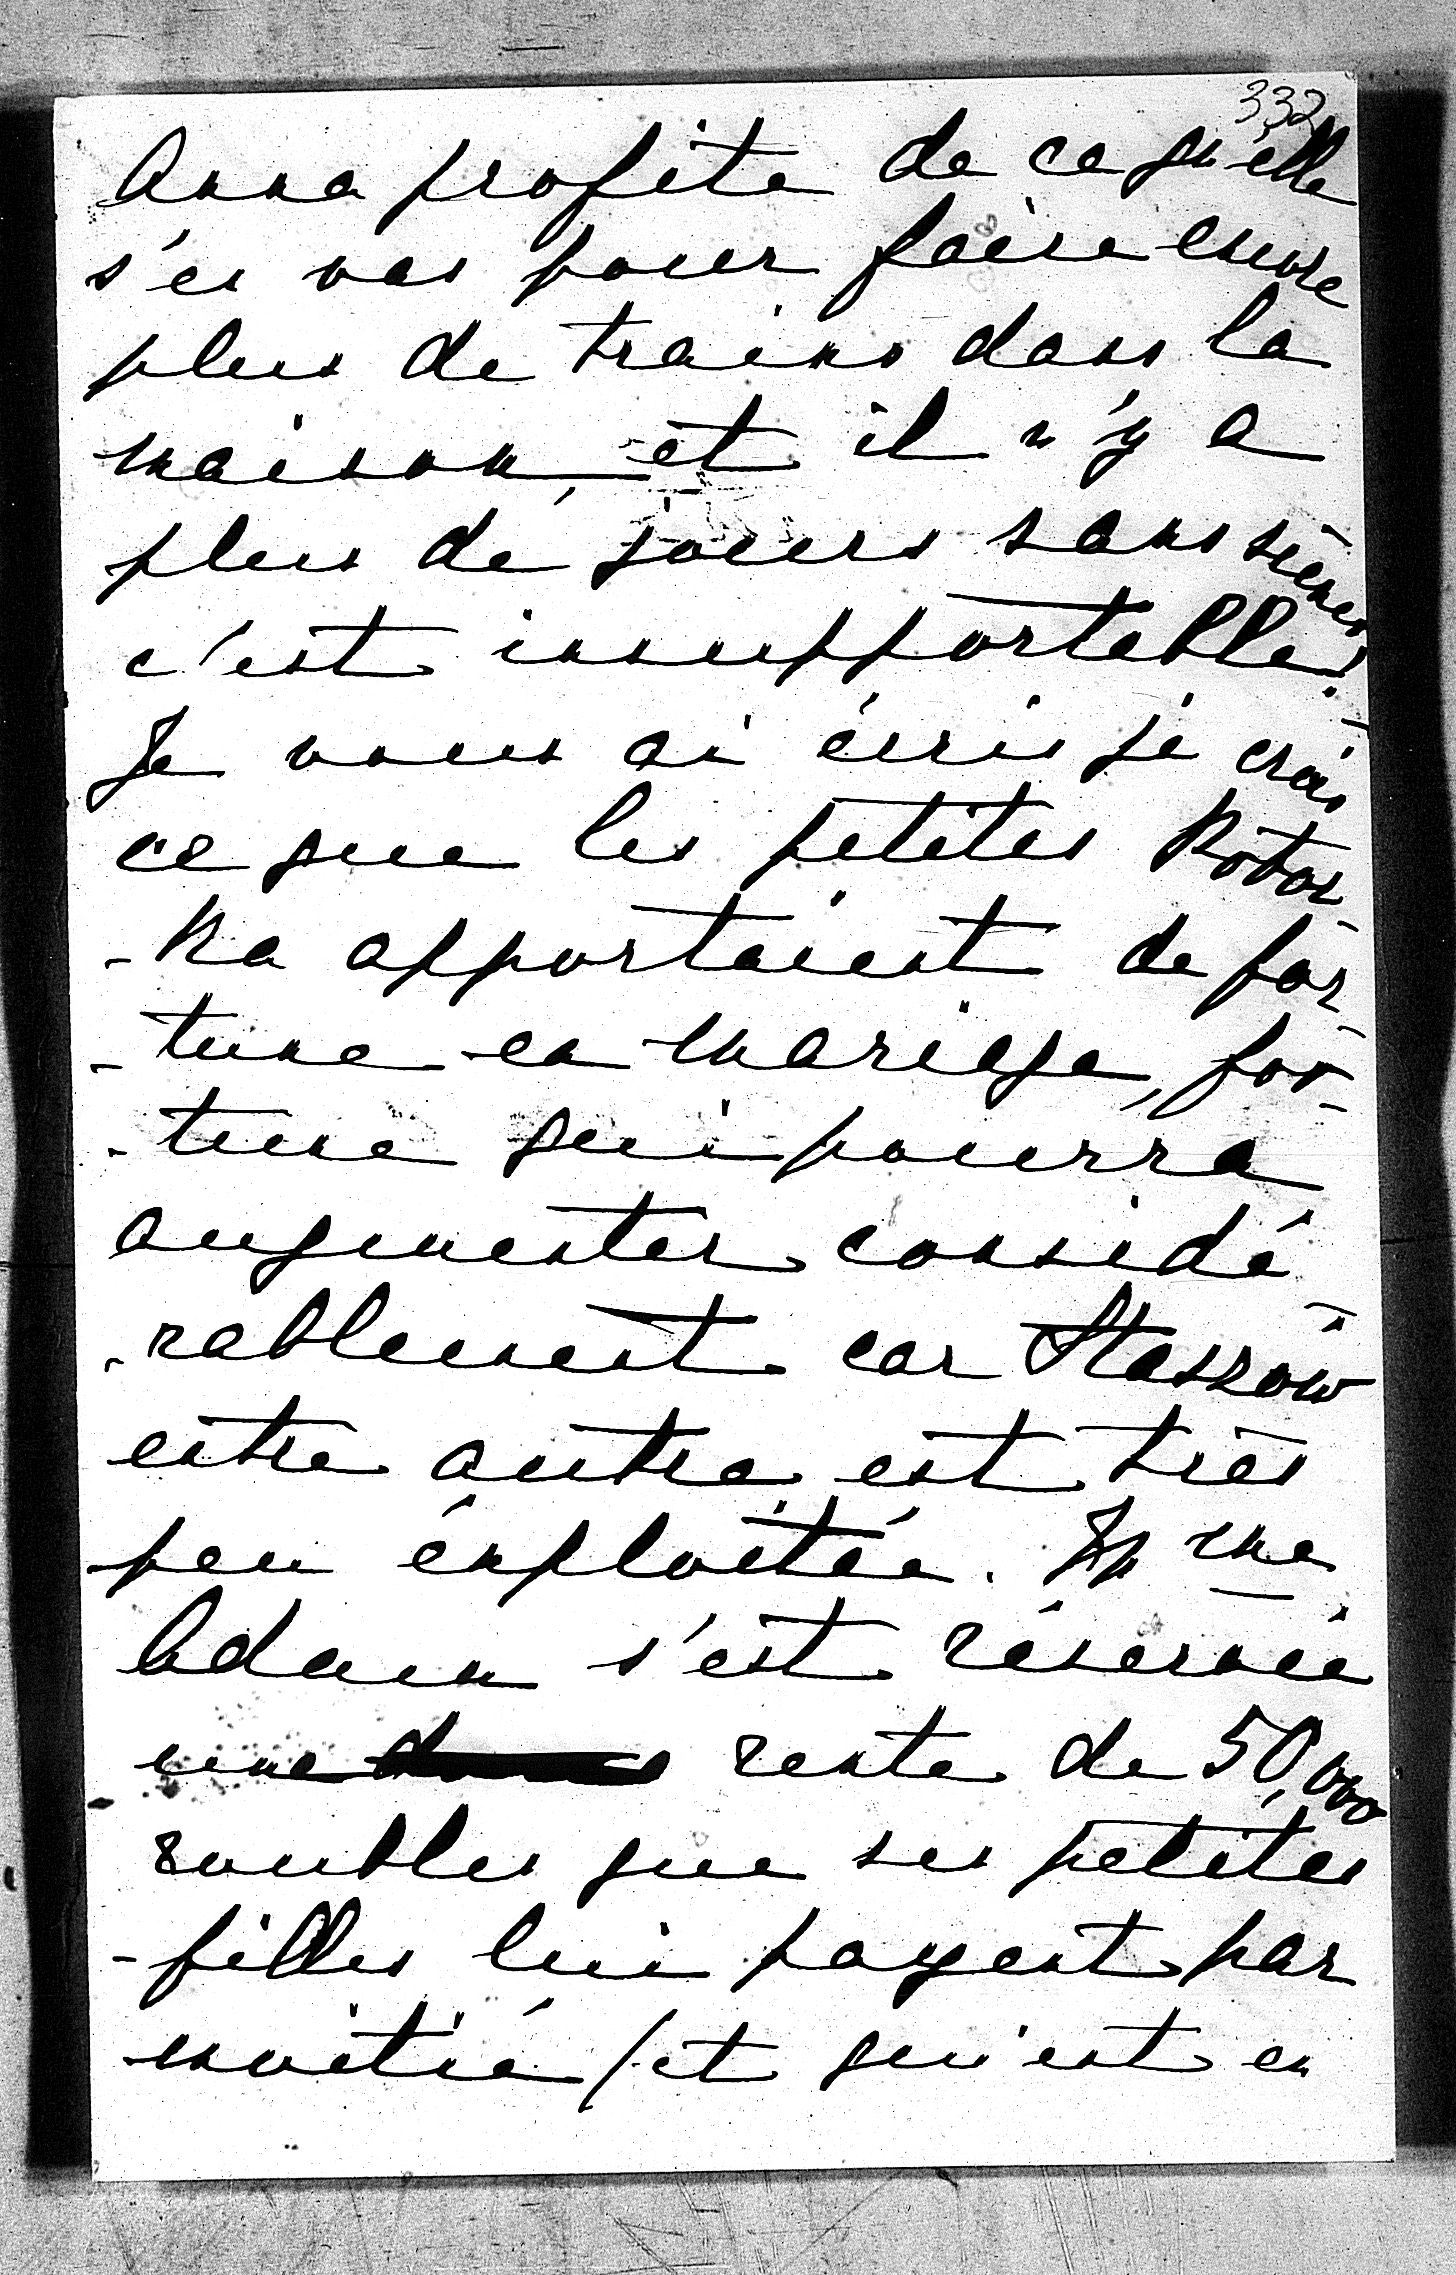 332
Anna profite de ce qu'elle
s'en vas pour faire encore
plus de trains dans la
maison, et il n'y a
plus de jours sans scènes
c'est insupportable!
Je vous ai écris je crois
ce que les petites Potoz-
-ka apportaient de for-
-tune en mariage, for-
-tune qui pourra
augmenter considé
-rablement car Staszow
entre autre est très
peu exploitée. Mme
Adam s'est réservée
une rente de 50,000
roubles que ses petites
-filles lui payent par
moitié (et qui est en